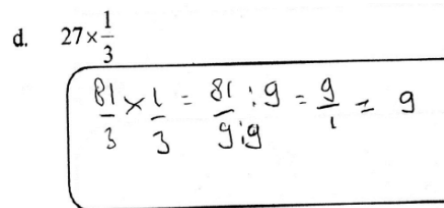 d. 27×1/3
81/3 × 1/3 = 81:9/9:9 = 9/1 = 9